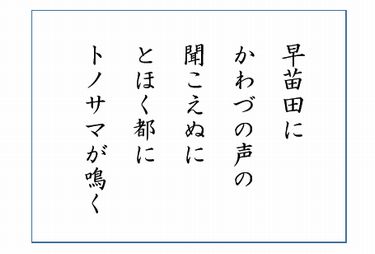 早苗田に
かわづの声の
聞こえぬに
とほく都に
トノサマが鳴く